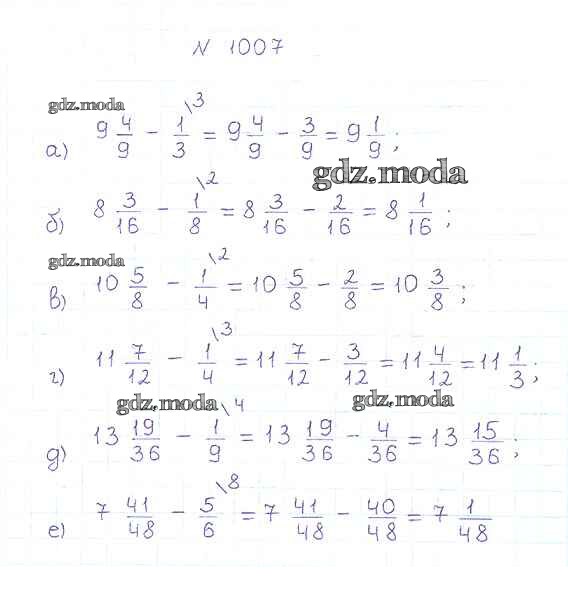 N 1007
gdz.moda
а) 9 4/9 - 1/3 \3 = 9 4/9 - 3/9 = 9 1/9 ;
gdz.moda
б) 8 3/16 - 1/8 \2 = 8 3/16 - 2/16 = 8 1/16 ;
gdz.moda
в) 10 5/8 - 1/4 \2 = 10 5/8 - 2/8 = 10 3/8 ;
г) 11 7/12 - 1/4 \3 = 11 7/12 - 3/12 = 11 4/12 = 11 1/3 ;
gdz.moda gdz.moda
д) 13 19/36 - 1/9 \4 = 13 19/36 - 4/36 = 13 15/36 ;
е) 7 41/48 - 5/6 \8 = 7 41/48 - 40/48 = 7 1/48